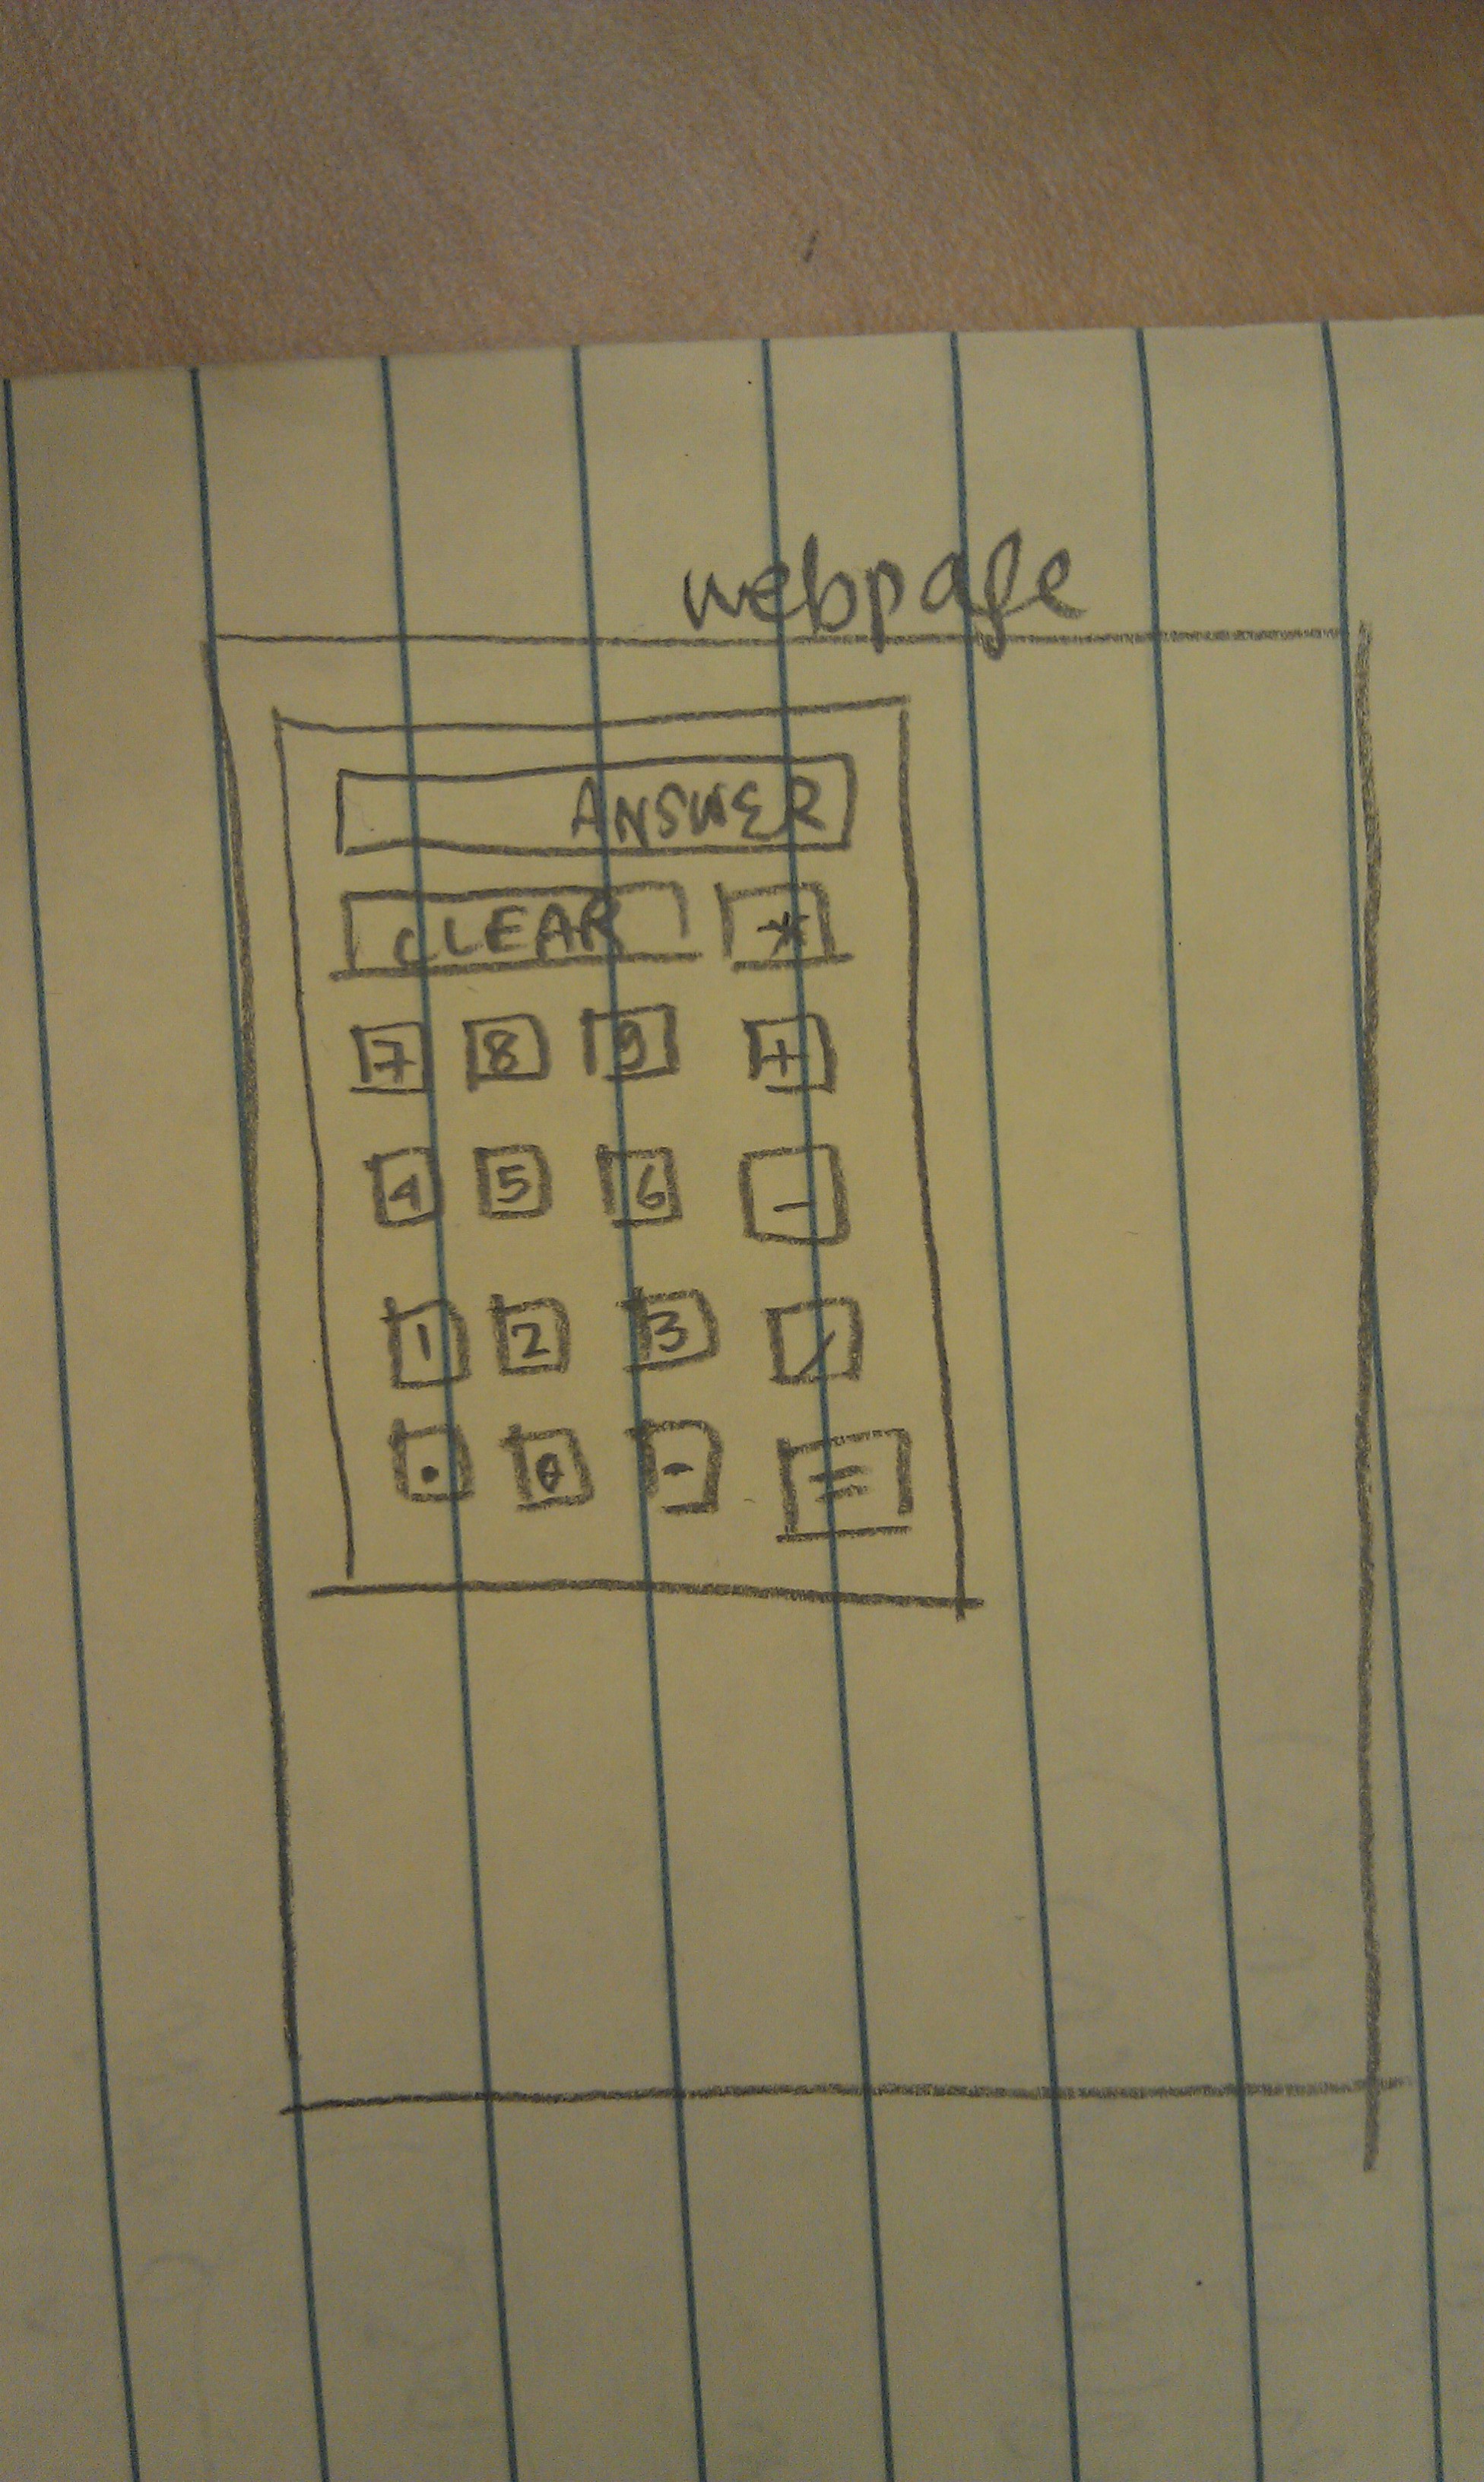 webpage
ANSWER
CLEAR *
7 8 9 +
4 5 6 -
1 2 3 /
. 0 - =